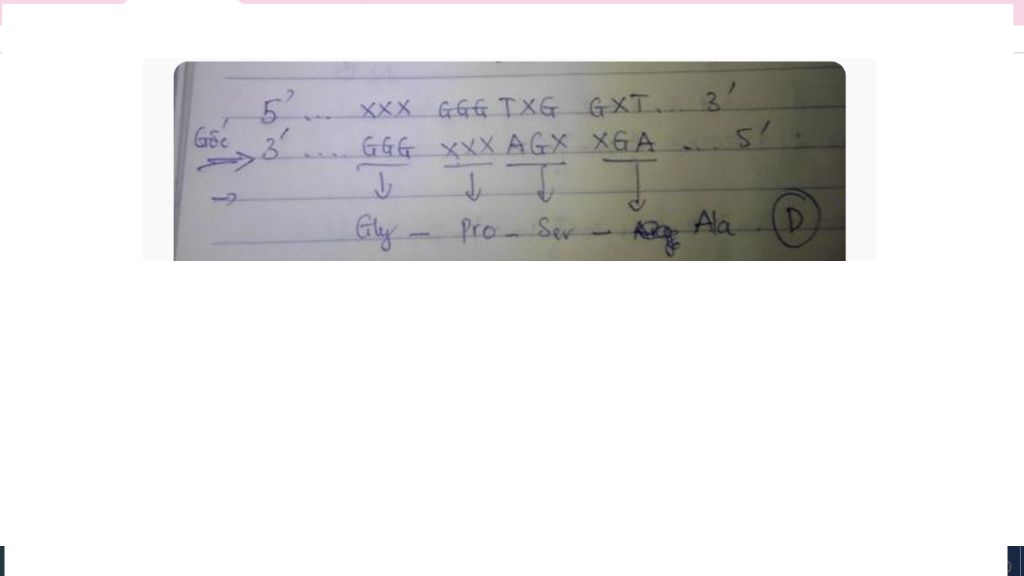 5' ... XXX GGG TXG GXT... 3'
Gốc 3' .... GGG XXX AGX XGA ... 5'
Gly - Pro - Ser - Ala. D